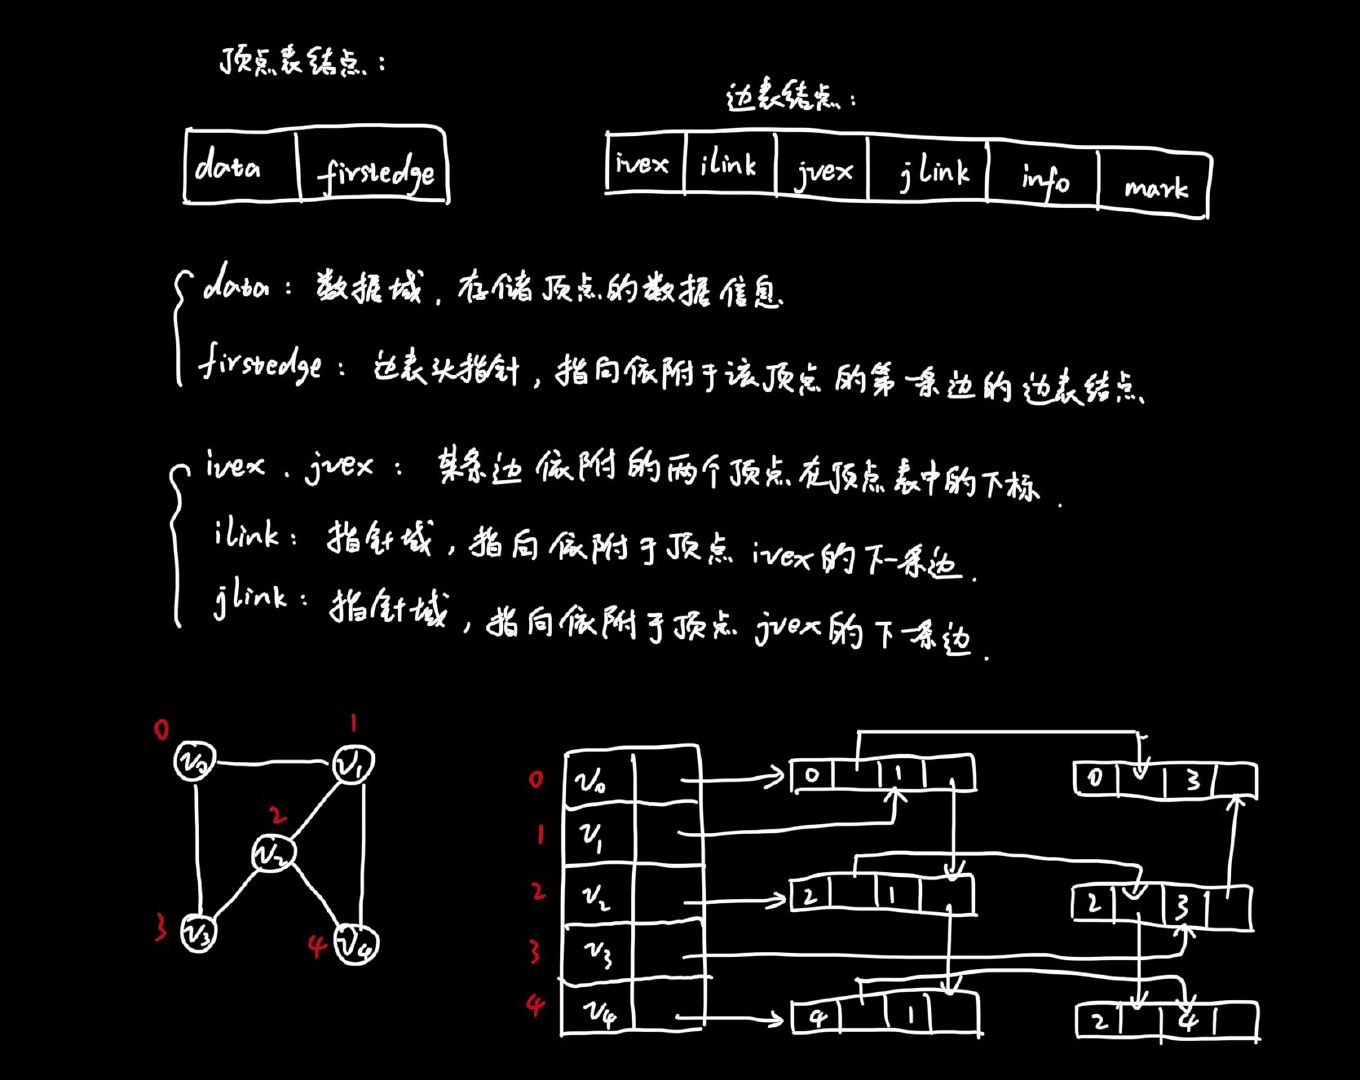 顶点表结点：
边表结点：
data firstedge
ivex ilink jvex jlink info mark
data：数据域，存储顶点的数据信息
firstedge：边表头指针，指向依附于该顶点的第一条边的边表结点
ivex．jvex：某条边依附的两个顶点在顶点表中的下标．
ilink：指针域，指向依附于顶点ivex的下一条边．
jlink：指针域，指向依附于顶点jvex的下一条边．
0 1
V0 V1
2
V2
3 V3 4 V4
0 V0 0 1 0 3
1 V1
2 V2 2 1 2 3
3 V3
4 V4 4 1 2 4